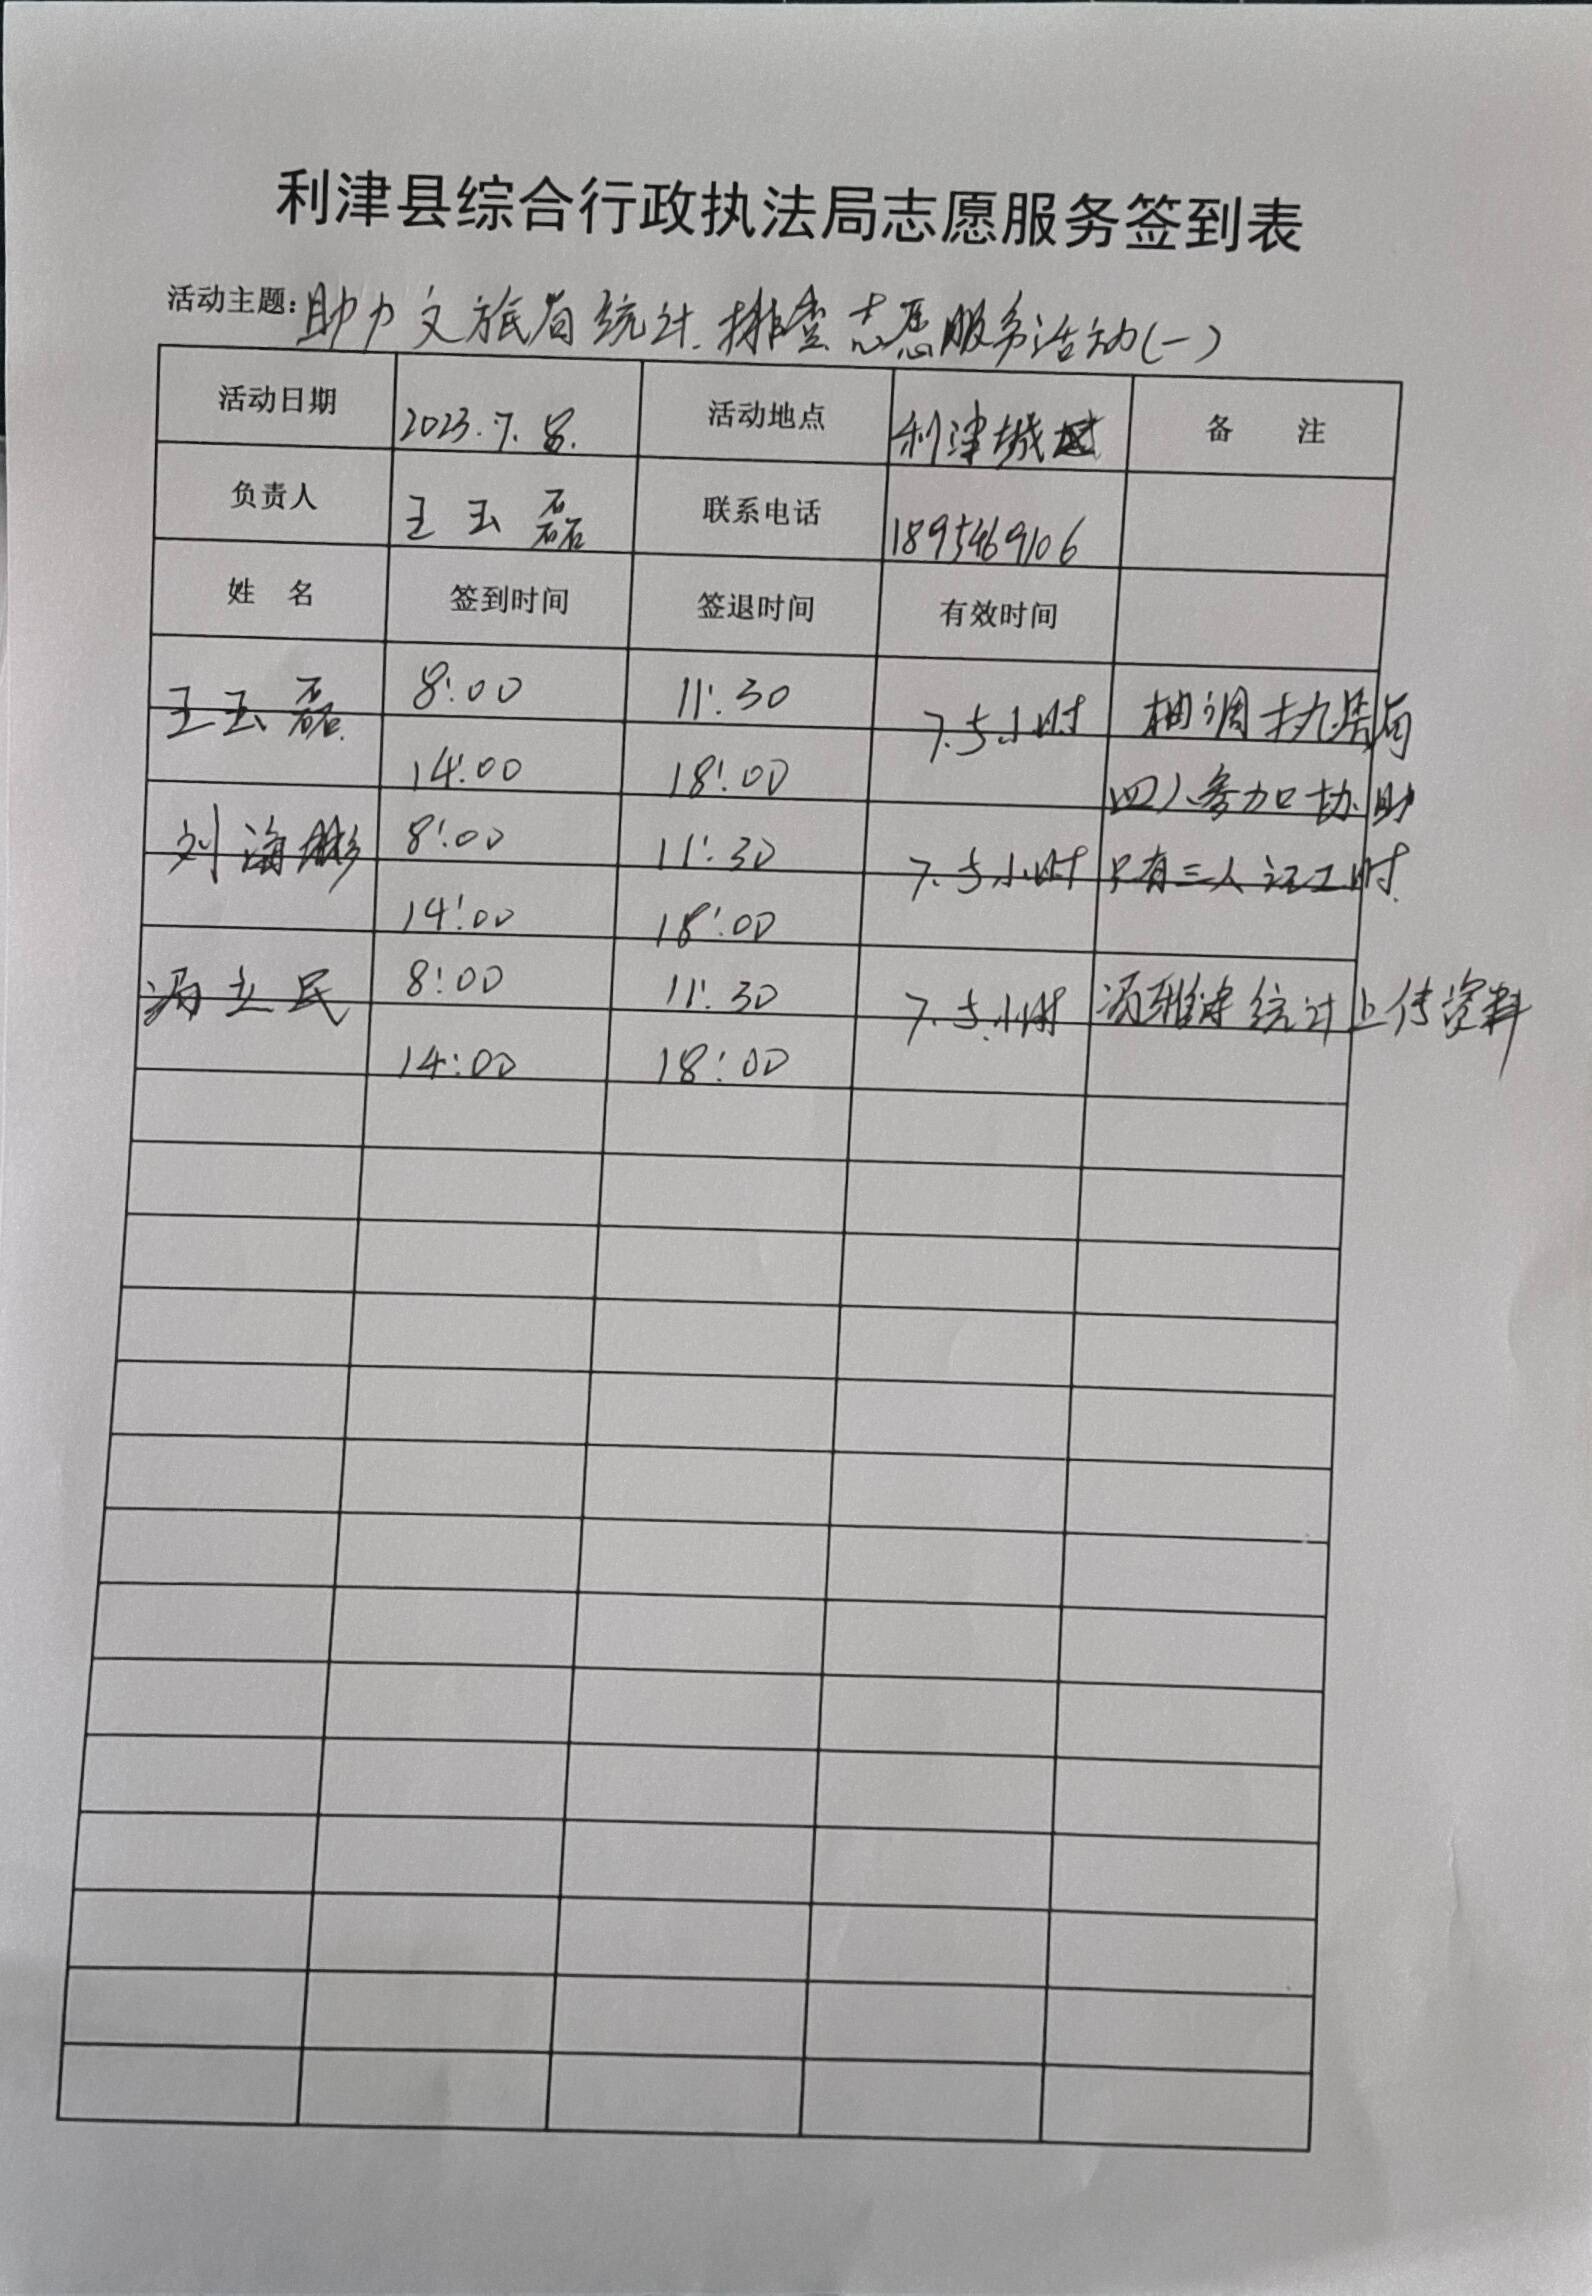 利津县综合行政执法局志愿服务签到表
活动主题：助力文旅局统计.排查志愿服务活动(一)
活动日期 2023.7.8. 活动地点 利津城区 备 注
负责人 王玉磊 联系电话 1895469106
姓 名 签到时间 签退时间 有效时间
王玉磊 8:00 11:30 7.5小时 抽调执法局
14:00 18:00 四人参加协助
刘海彬 8:00 11:30 7.5小时 只有三人记工时.
14:00 18:00
冯立民 8:00 11:30 7.5小时 冯 统计上传资料
14:00 18:00